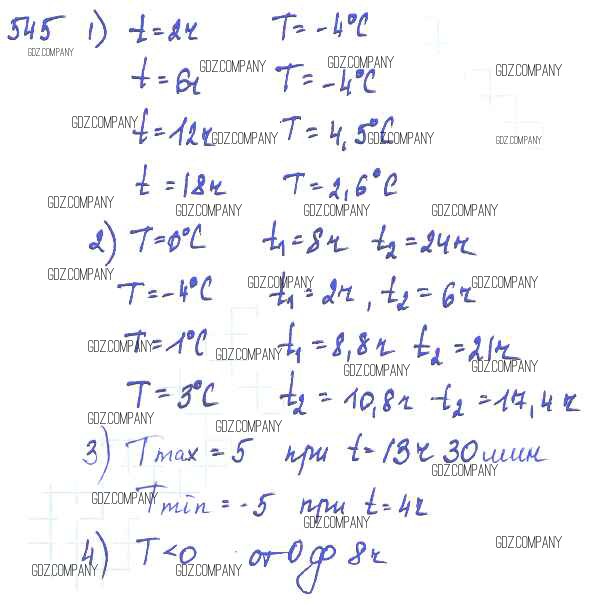 545 1) t=2ч T=-4°C
GDZ.COMPANY
t=6ч GDZ.COMPANY T=-4°C GDZ.COMPANY GDZ.COMPANY
GDZ.COMPANY t=12ч GDZ.COMPANY T=4,5°C GDZ.COMPANY GDZ.COMPANY
t=18ч T=2,6°C
GDZ.COMPANY GDZ.COMPANY GDZ.COMPANY GDZ.COMPANY
2) T=0°C t₁=8ч t₂=24ч
GDZ.COMPANY GDZ.COMPANY GDZ.COMPANY
T=-4°C t₁=2ч, t₂=6ч
GDZ.COMPANY T=1°C GDZ.COMPANY t₁=8,8ч t₂=21ч
GDZ.COMPANY GDZ.COMPANY
T=3°C t₂=10,8ч t₂=17,4ч
GDZ.COMPANY GDZ.COMPANY
3) Tmax=5 при t=13ч 30мин
GDZ.COMPANY
GDZ.COMPANY Tmin=-5 при t=4ч
GDZ.COMPANY GDZ.COMPANY
4) T<0 от 0 до 8ч
GDZ.COMPANY GDZ.COMPANY